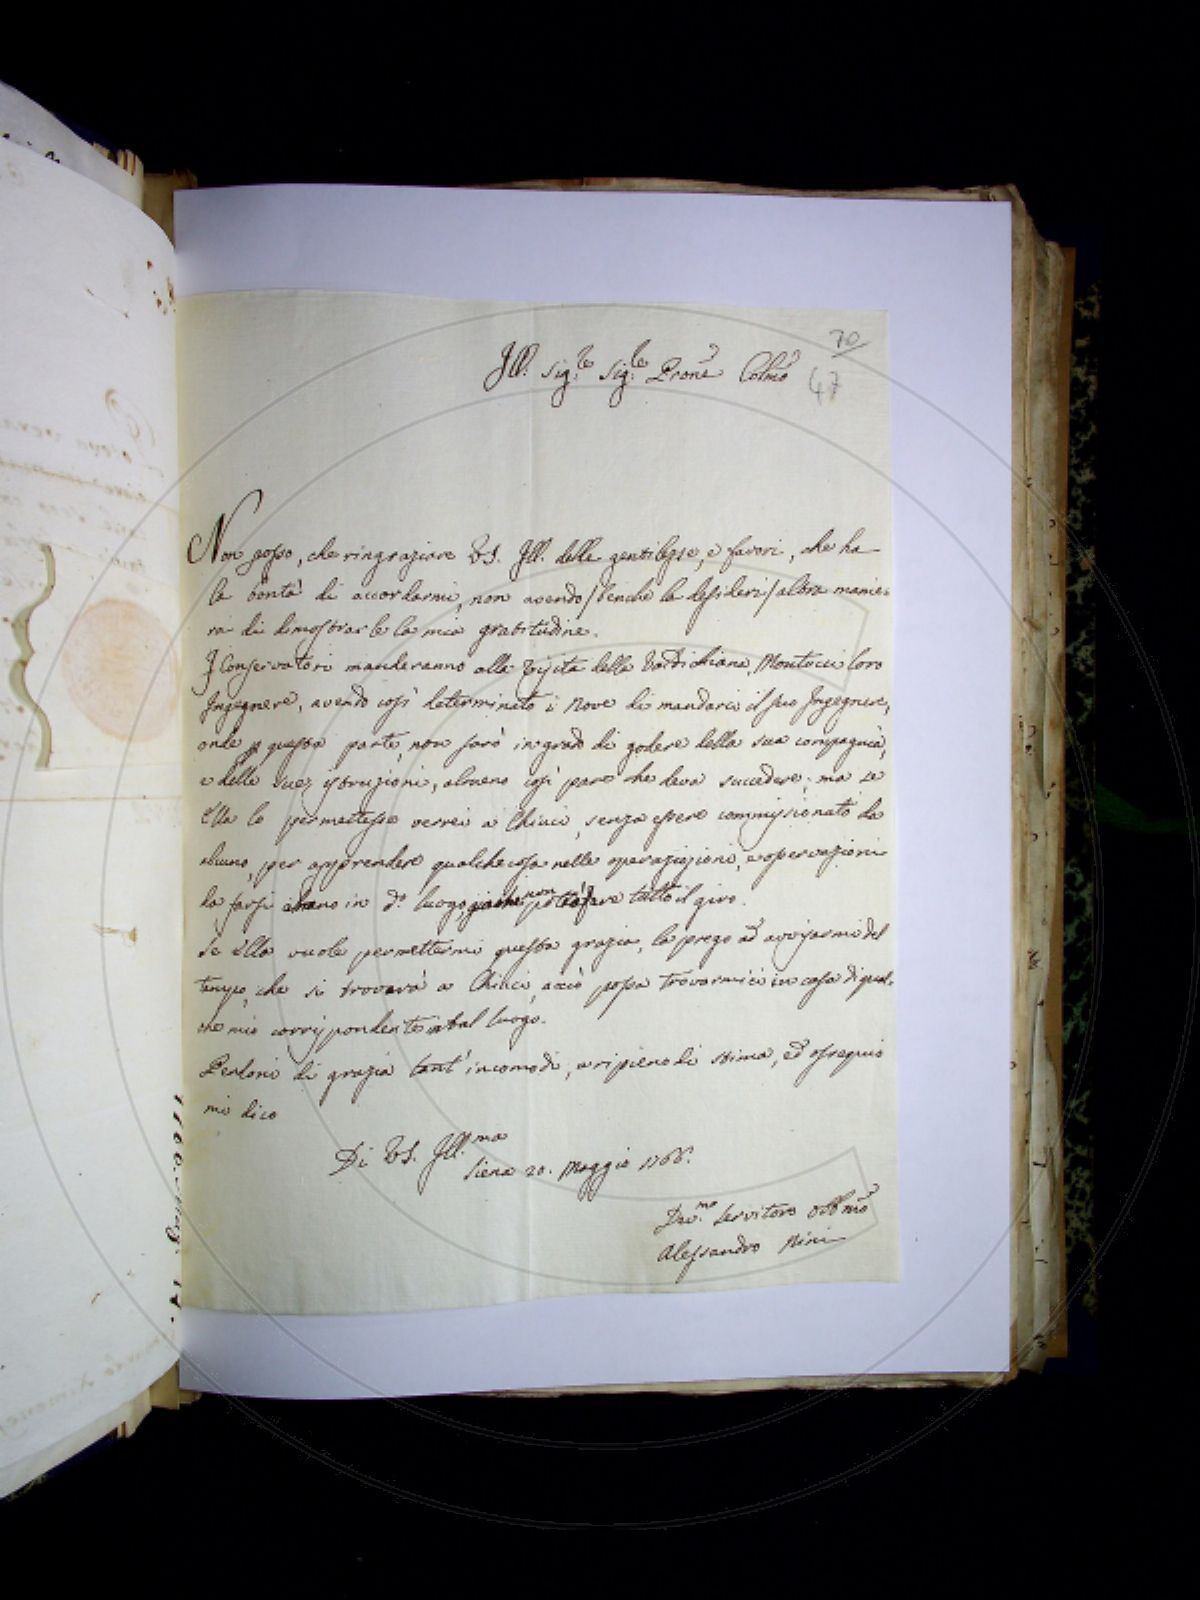 70
47
Ill. Sig.le Sig.le Prone Colmo
Non posso, che ringraziare VS. Ill. delle gentilezze, e favori, che ha
la bontà di accordarmi, non avendo / benchè la desideri / altra manie-
ra di dimostrarle la mia gratitudine.
I Conservatori manderanno alla Visita della Valdichiana, Montucci loro
Ingegnere, avendo così determinato i Nove di mandarci il suo Ingegnere,
onde p questa parte, non sarò in grado di godere della sua compagnia,
e delle sue istruzioni, almeno così pare che deva succedere; ma se
Ella lo permettesse verrei a Chiuci, senza essere commissionato da
alcuno, per apprendere qualche cosa nelle operazizioni, e osservazioni
da farsi in do luogo, giachè non potrò fare tutto il giro.
Se Ella vuole permettermi questa grazia, la prego ad avvisarmi del
tempo, che si troverà a Chiuci, acciò possa trovarmici in casa di qual-
che mio corrispondente in tal luogo.
Perdoni di grazia tant' incomodi, e ripieno di stima, ed ossequio
mi dico
Di VS. Ill.ma
Siena 20. Maggio 1766.
Dev.mo Servitore Obbmo
Alessandro Nini